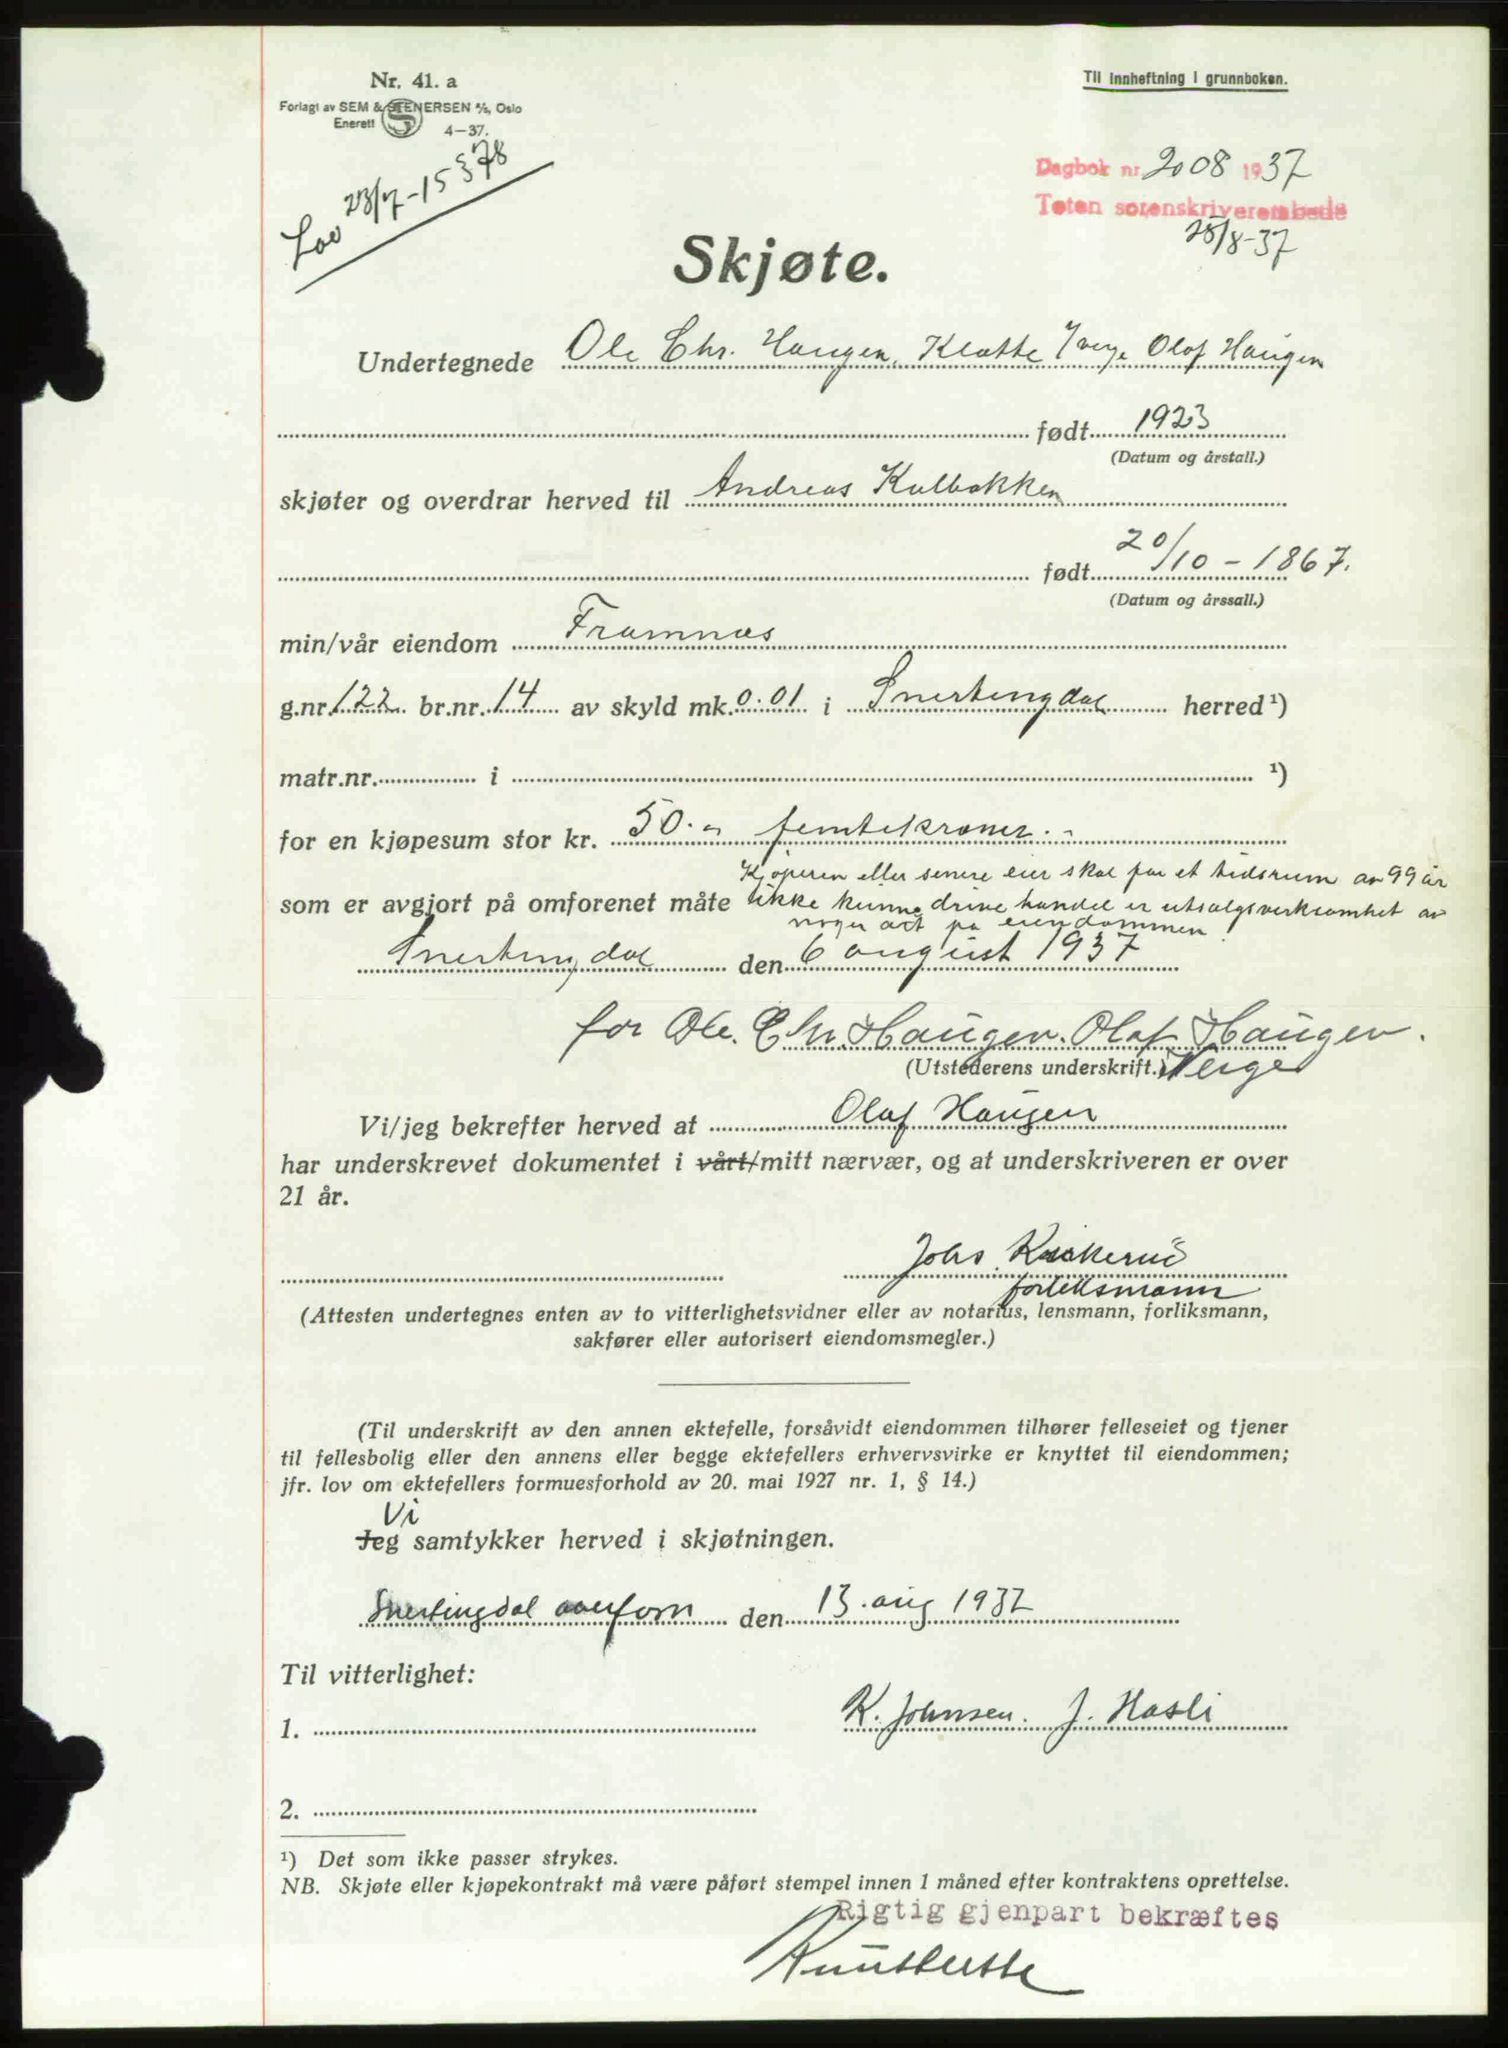 Nr. 41. a
Forlagt av SEM & STENERSEN A/S, Oslo
Enerett
4—37.
Til innheftning i grunnboken.
Lov 23/7-15378
Dagbok nr. 2008 1937
Toten sorenskriverembede
25/8-37
Skjøte.
Undertegnede Ole Chr. Haugen, Verge Olaf Haugen
født 1923
(Datum og årstall.)
skjøter og overdrar herved til Andreas Kulbakken
født 20/10 - 1867.
(Datum og årssall.)
min/vår eiendom Framnæs
g.nr. 122 br.nr. 14 av skyld mk. 0.01 i Snertingdal herred ¹)
matr.nr. i ¹)
for en kjøpesum stor kr. 50.- femtikroner.-
Kjøperen eller senere eier skal for et tidsrum av 99 år
som er avgjort på omforenet måte ikke kunne drive handel er utsalgsverksomhet av
nogen art på eiendommen.
Snertingdal den 6 august 1937
for Ole. Chr. Haugen. Olaf Haugen.
(Utstederens underskrift.) Verge
Vi/jeg bekrefter herved at Olaf Haugen
har underskrevet dokumentet i vårt/mitt nærvær, og at underskriveren er over
21 år.
Johs.
forliksmann
(Attesten undertegnes enten av to vitterlighetsvidner eller av notarius, lensmann, forliksmann,
sakfører eller autorisert eiendomsmegler.)
(Til underskrift av den annen ektefelle, forsåvidt eiendommen tilhører felleseiet og tjener
til fellesbolig eller den annens eller begge ektefellers erhvervsvirke er knyttet til eiendommen;
jfr. lov om ektefellers formuesforhold av 20. mai 1927 nr. 1, § 14.)
Vi
Jeg samtykker herved i skjøtningen.
Snertingdal overform den 13. aug 1937
Til vitterlighet:
K. Johnsen. J. Hasli
1.
2.
¹) Det som ikke passer strykes.
NB. Skjøte eller kjøpekontrakt må være påført stempel innen 1 måned efter kontraktens oprettelse.
Rigtig gjenpart bekræftes